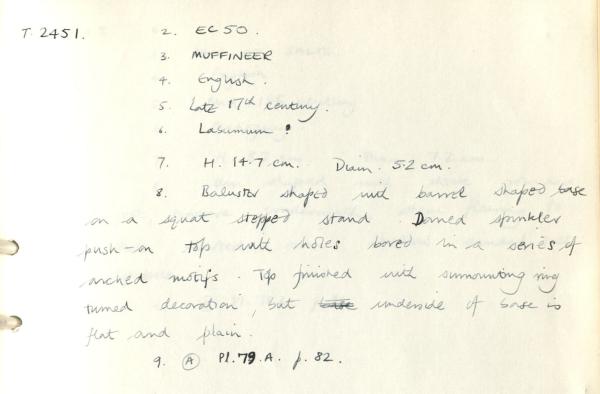 T. 2451. 2. EC 50.
3. MUFFINEER
4. English.
5. Late 17th century.
6. Laburnum ?
7. H. 14.7 cm. Diam. 5.2 cm.
8. Baluster shaped with barrel shaped base
on a squat stepped stand Domed sprinkler
push-on top with holes bored in a series of
arched motifs. Top finished with surmounting ring
turned decoration, but base underside of base is
flat and plain.
9. A Pl. 79.A. p. 82.